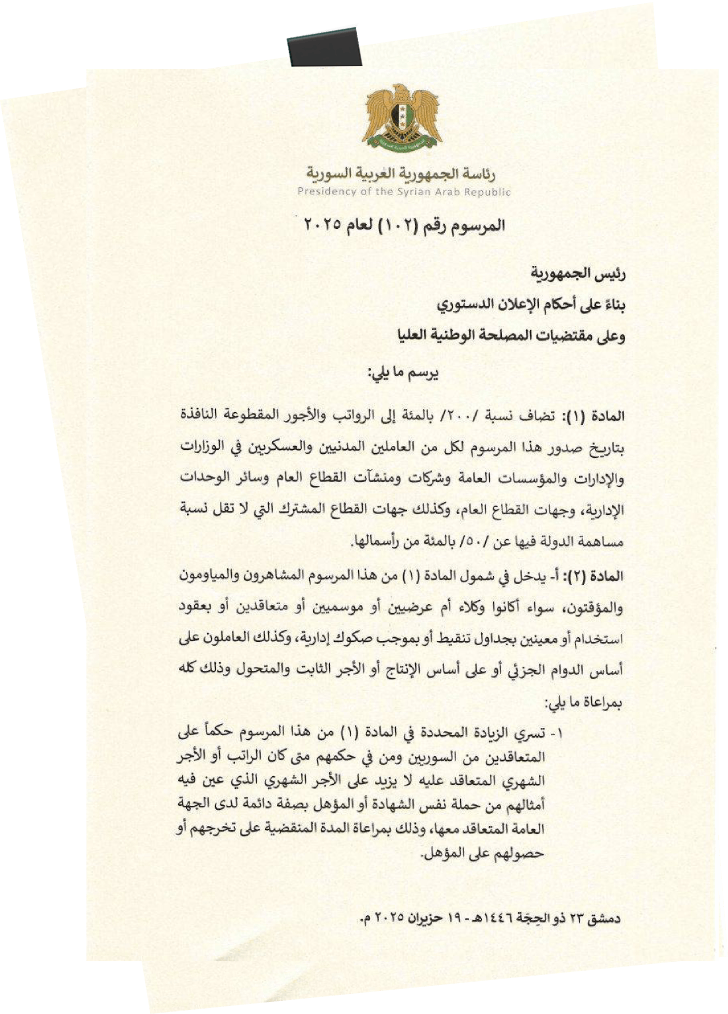 رئاسة الجمهورية العربية السورية
Presidency of the Syrian Arab Republic
المرسوم رقم (١٠٢) لعام ٢٠٢٥
رئيس الجمهورية
بناءً على أحكام الإعلان الدستوري
وعلى مقتضيات المصلحة الوطنية العليا
يرسم ما يلي:
المادة (١): تضاف نسبة /٢٠٠/ بالمئة إلى الرواتب والأجور المقطوعة النافذة
بتاريخ صدور هذا المرسوم لكل من العاملين المدنيين والعسكريين في الوزارات
والإدارات والمؤسسات العامة وشركات ومنشآت القطاع العام وسائر الوحدات
الإدارية، وجهات القطاع العام، وكذلك جهات القطاع المشترك التي لا تقل نسبة
مساهمة الدولة فيها عن /٥٠/ بالمئة من رأسمالها.
المادة (٢): أ- يدخل في شمول المادة (١) من هذا المرسوم المشاهرون والمياومون
والمؤقتون، سواء أكانوا وكلاء أم عرضيين أو موسميين أو متعاقدين أو بعقود
استخدام أو معينين بجداول تنقيط أو بموجب صكوك إدارية، وكذلك العاملون على
أساس الدوام الجزئي أو على أساس الإنتاج أو الأجر الثابت والمتحول وذلك كله
بمراعاة ما يلي:
١- تسري الزيادة المحددة في المادة (١) من هذا المرسوم حكماً على
المتعاقدين من السوريين ومن في حكمهم متى كان الراتب أو الأجر
الشهري المتعاقد عليه لا يزيد على الأجر الشهري الذي عين فيه
أمثالهم من حملة نفس الشهادة أو المؤهل بصفة دائمة لدى الجهة
العامة المتعاقد معها، وذلك بمراعاة المدة المنقضية على تخرجهم أو
حصولهم على المؤهل.
دمشق ٢٣ ذو الحِجَة ١٤٤٦هـ - ١٩ حزيران ٢٠٢٥ م.